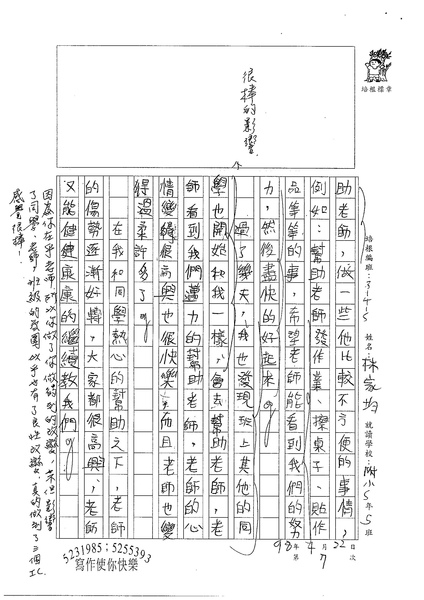 培根標章
培根編班：3145
姓名：林家均
就讀學校：附小5年5班
助老師，做一些他比較不方便的事情，
例如：幫助老師發作業、擦桌子、貼作
品等等的事，希望老師能看到我們的努
力，然後盡快的好起來。
過了幾天，我也發現班上其他的同
學也開始和我一樣，會去幫助老師，老
師看到我們盡力的幫助老師，老師的心
情變得很高興也很快樂，而且老師也變
得溫柔許多了。
在我和同學熱心的幫助之下，老師
的傷勢逐漸好轉，大家都很高興，老師
又能健健康康的繼續教我們。
很棒的影響
因為你在乎老師所以你做了你做得到的改變，不但影響
了同學、老師，班級的氛圍似乎也有了良性改變，真的做到了三個
感覺很棒！
98年4月22日
第7次
5231985；5255393
寫作使你快樂